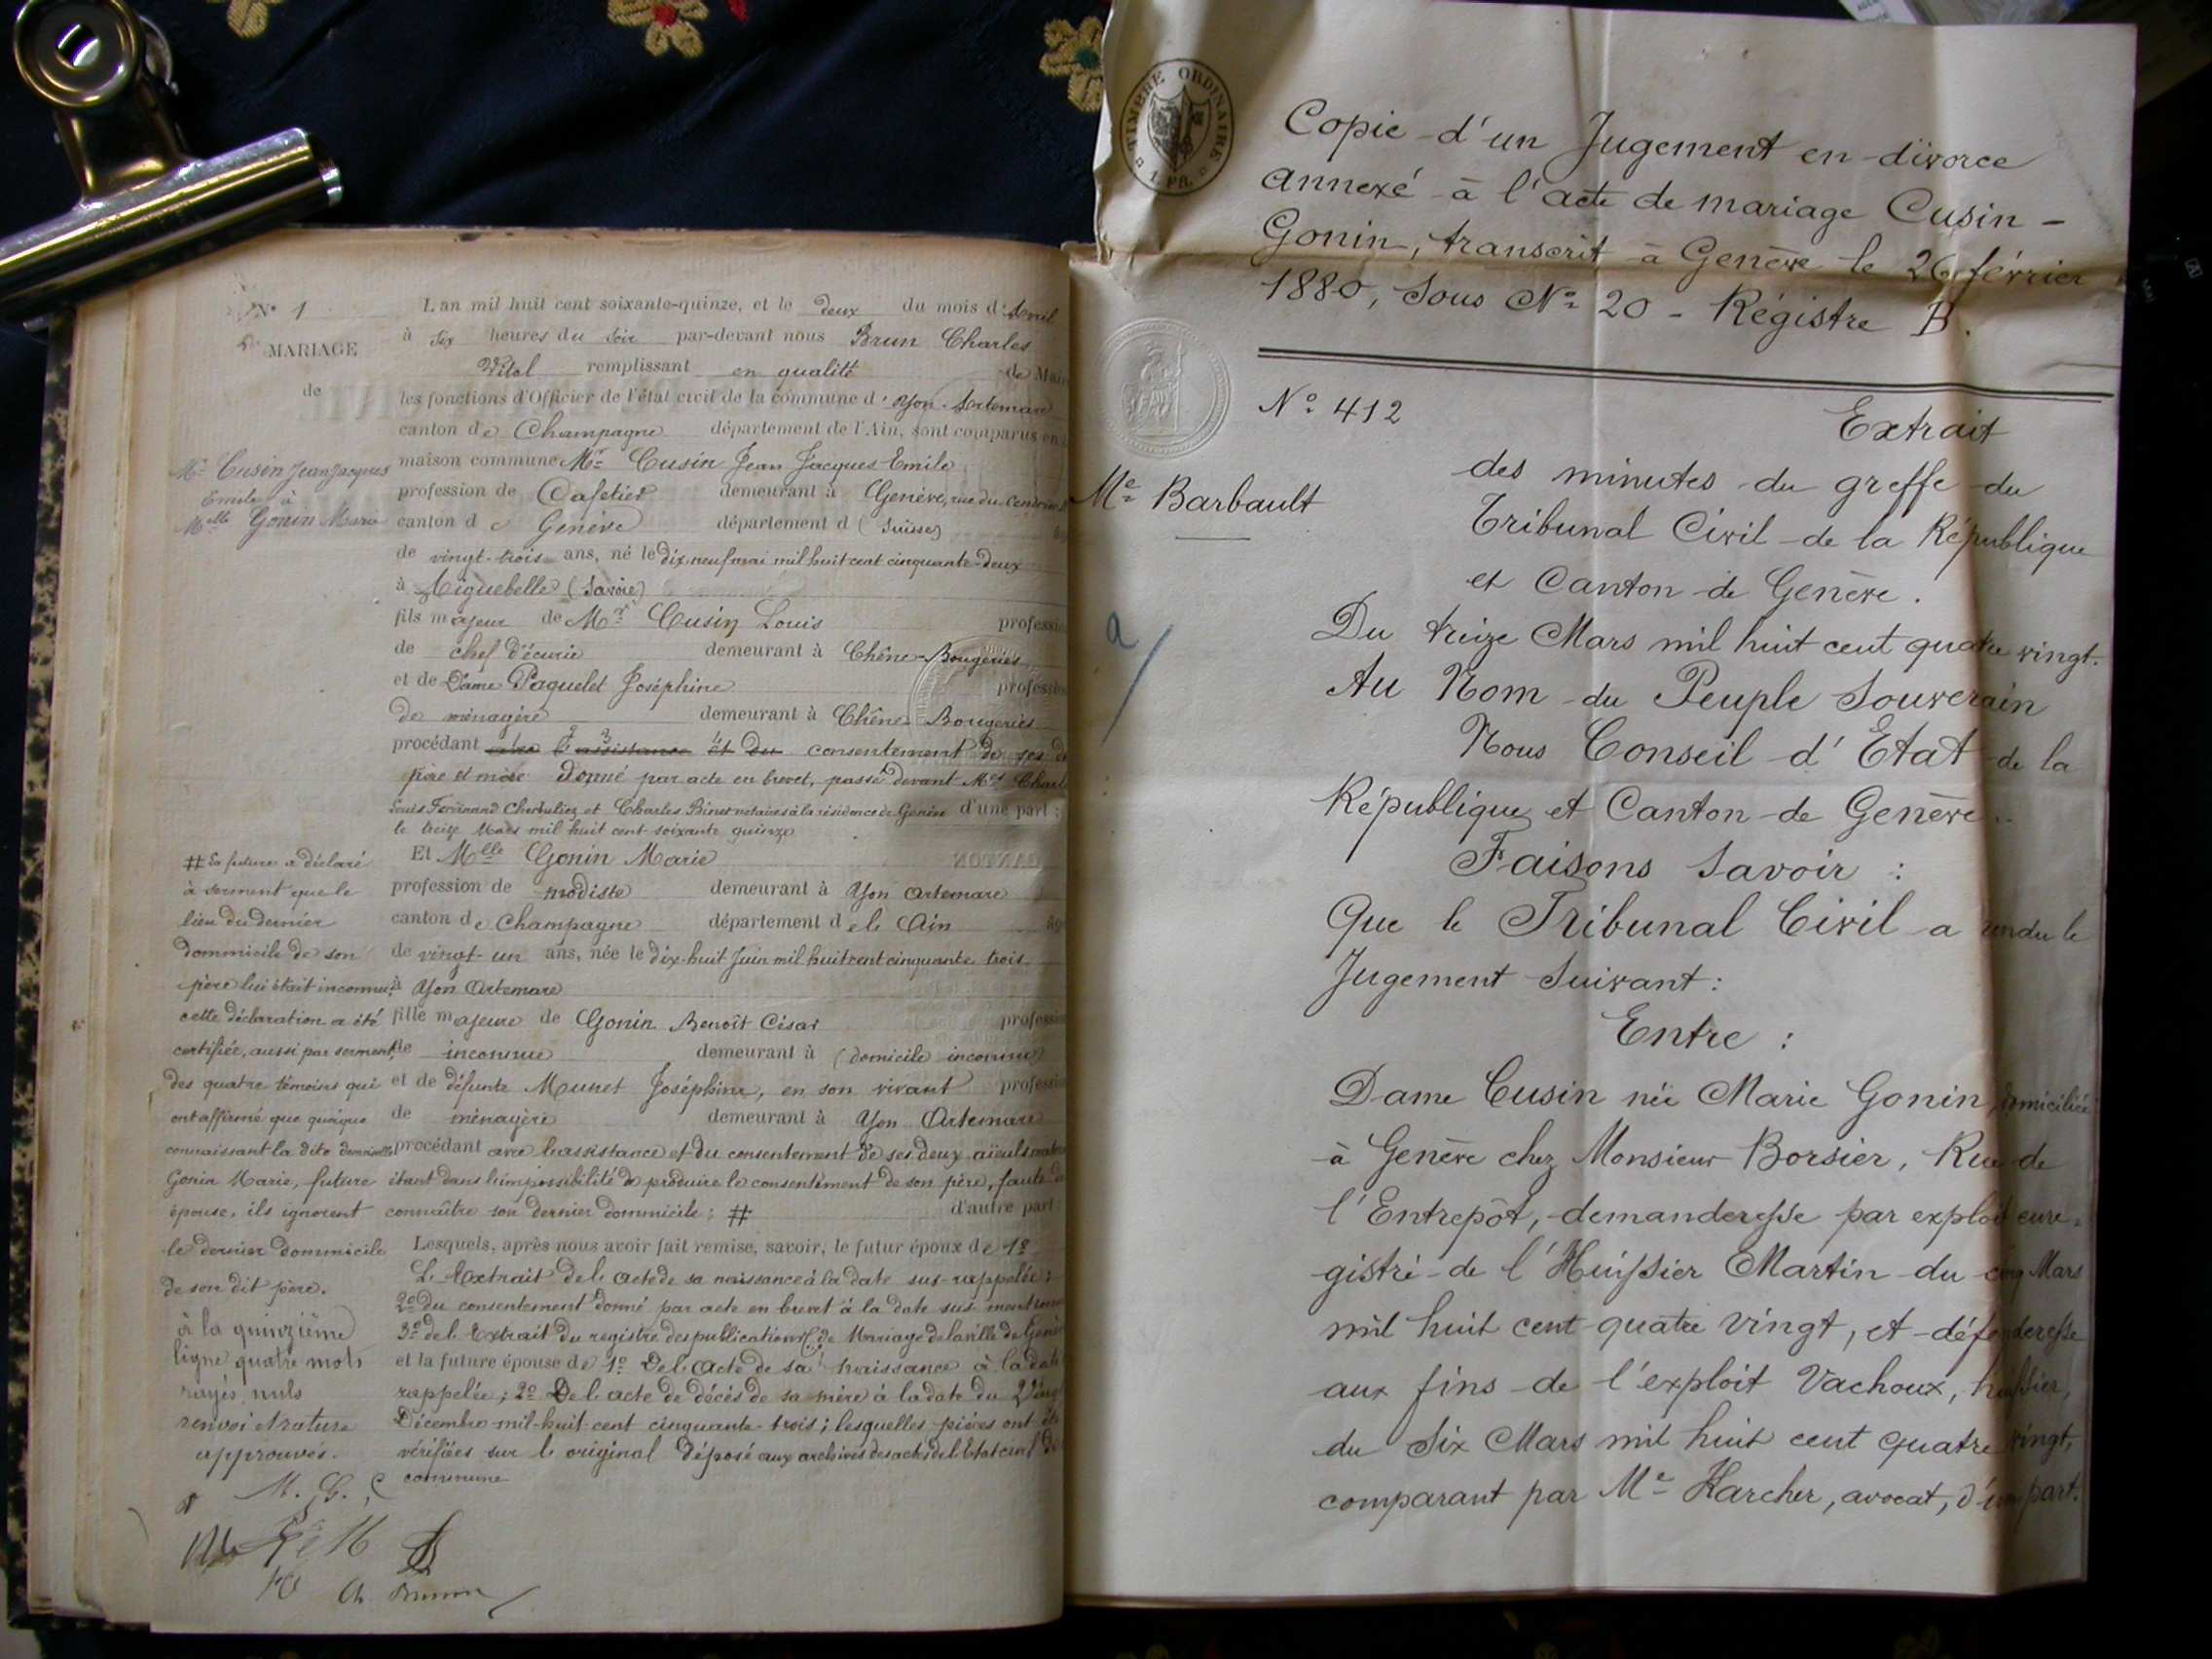 N° 1
MARIAGE
de
Mr Cusin Jean Jacques
Emile à
Melle Gonin Marie
L'an mil huit cent soixante-quinze, et le deux du mois d'Avril
à six heures du soir par-devant nous Brun Charles
Vital remplissant en qualité de Maire
les fonctions d'Officier de l'état civil de la commune d'Yon-Artemare
canton de Champagne département de l'Ain, sont comparus en
maison commune Mr Cusin Jean Jacques Emile
profession de Cafetier demeurant à Genève, rue du
canton de Genève département d (Suisse)
de vingt-trois ans, né le dix neuf mai mil huit cent cinquante-deux
à Aiguebelle (Savoie)
fils majeur de Mr Cusin Louis profession
de chef d'écurie demeurant à Chêne-Bougeries
et de Dame Paquelet Joséphine profession
de ménagère demeurant à Chêne-Bougeries
procédant avec l'assistance et du consentement de ses
père et mère donné par acte en brevet, passé devant Mes
Louis Ferdinand Cherbuliez et Charles Binet notaires à la résidence de Genève d'une part ;
le treize Mars mil huit cent soixante quinze
Et Melle Gonin Marie
profession de modiste demeurant à Yon Artemare
canton de Champagne département de l'Ain
de vingt-un ans, née le dix-huit Juin mil huit cent cinquante trois
à Yon Artemare
fille majeure de Gonin Benoît César profession
de inconnue demeurant à (domicile inconnu)
et de défunte Munet Joséphine, en son vivant profession
de ménagère demeurant à Yon Artemare
procédant avec l'assistance et du consentement de ses deux aïeuls
étant dans l'impossibilité de produire le consentement de son père, faute de
connaître son dernier dommicile ; # d'autre part
Lesquels, après nous avoir fait remise, savoir, le futur époux de 1°
L'Extrait de l'acte de sa naissance à la date sus-rappelée ;
2° du consentement donné par acte en brevet à la date sus mentionnée
3° de l'Extrait du registre des publications de Mariage de la ville de Genève
et la future épouse de 1° De l'acte de sa naissance à la date
rappelée ; 2° De l'acte de décès de sa mère à la date du
Décembre mil-huit cent cinquante-trois ; lesquelles pièces ont été
vérifiées sur le original déposé aux archives des actes de l'Etat civil de
commune
# La future a déclaré
à serment que le
lieu du dernier
dommicile de son
père lui était inconnu ;
cette déclaration a été
certifiée, aussi par serment,
des quatre témoins qui
ont affirmé que quoique
connaissant la dite demoiselle
Gonin Marie, future
épouse, ils ignorent
le dernier dommicile
de son dit père.
à la quinzième
ligne quatre mots
rayés nuls
renvoi et rature
approuvés.
M. G. C
Ch Brun
TIMBRE ORDINAIRE
1 FR.
Copie d'un Jugement en divorce
annexé à l'acte de mariage Cusin -
Gonin, transcrit à Genève le 26 février
1880, Sous No 20 - Régistre B.
No 412
Me Barbault
a
Extrait
des minutes du greffe du
Tribunal Civil de la République
et Canton de Genève.
Du treize Mars mil huit cent quatre vingt.
Au Nom du Peuple Souverain
Nous Conseil d'Etat de la
République et Canton de Genève.
Faisons Savoir :
Que le Tribunal Civil a rendu le
Jugement Suivant :
Entre :
Dame Cusin née Marie Gonin, domiciliée
à Genève chez Monsieur Borsier, Rue de
l'Entrepôt, demanderesse par exploit enre-
gistré de l'Huissier Martin du cinq Mars
mil huit cent quatre vingt, et défenderesse
aux fins de l'exploit Vachoux, huissier,
du Six Mars mil huit cent quatre vingt,
comparant par Me Karcher, avocat, d'une part.